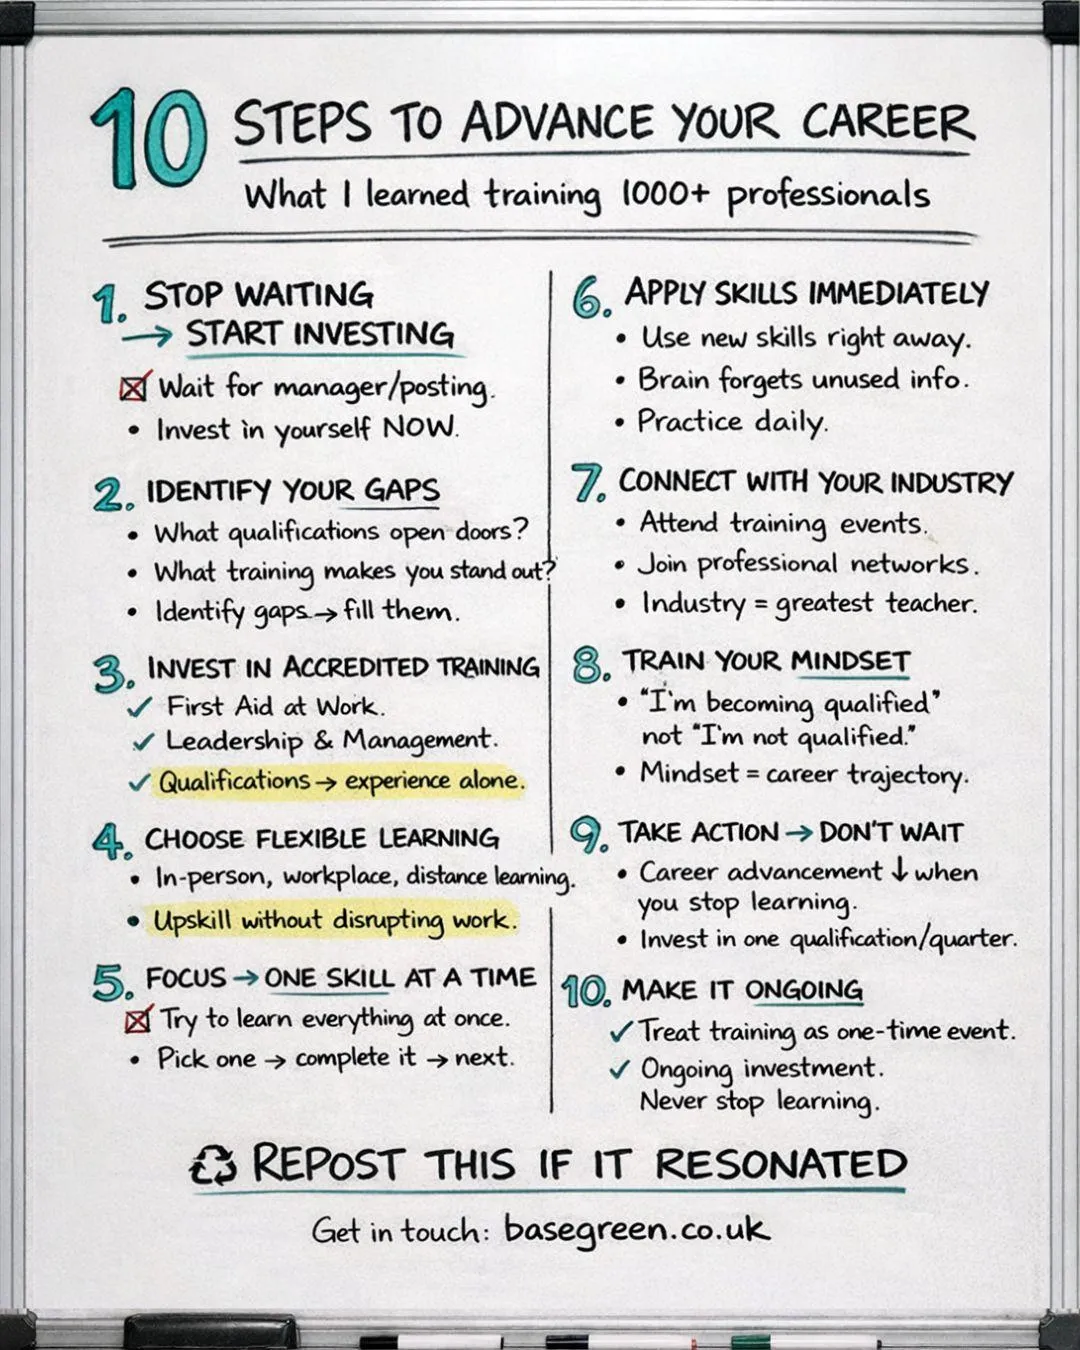 10 STEPS TO ADVANCE YOUR CAREER
What I learned training 1000+ professionals
1. STOP WAITING
→ START INVESTING
☒ Wait for manager/posting.
• Invest in yourself NOW.
2. IDENTIFY YOUR GAPS
• What qualifications open doors?
• What training makes you stand out?
• Identify gaps → fill them.
3. INVEST IN ACCREDITED TRAINING
✓ First Aid at Work.
✓ Leadership & Management.
✓ Qualifications → experience alone.
4. CHOOSE FLEXIBLE LEARNING
• In-person, workplace, distance learning.
• Upskill without disrupting work.
5. FOCUS → ONE SKILL AT A TIME
☒ Try to learn everything at once.
• Pick one → complete it → next.
6. APPLY SKILLS IMMEDIATELY
• Use new skills right away.
• Brain forgets unused info.
• Practice daily.
7. CONNECT WITH YOUR INDUSTRY
• Attend training events.
• Join professional networks.
• Industry = greatest teacher.
8. TRAIN YOUR MINDSET
• "I'm becoming qualified"
not "I'm not qualified."
• Mindset = career trajectory.
9. TAKE ACTION → DON'T WAIT
• Career advancement ↓ when
you stop learning.
• Invest in one qualification/quarter.
10. MAKE IT ONGOING
✓ Treat training as one-time event.
✓ Ongoing investment.
Never stop learning.
♻ REPOST THIS IF IT RESONATED
Get in touch: basegreen.co.uk